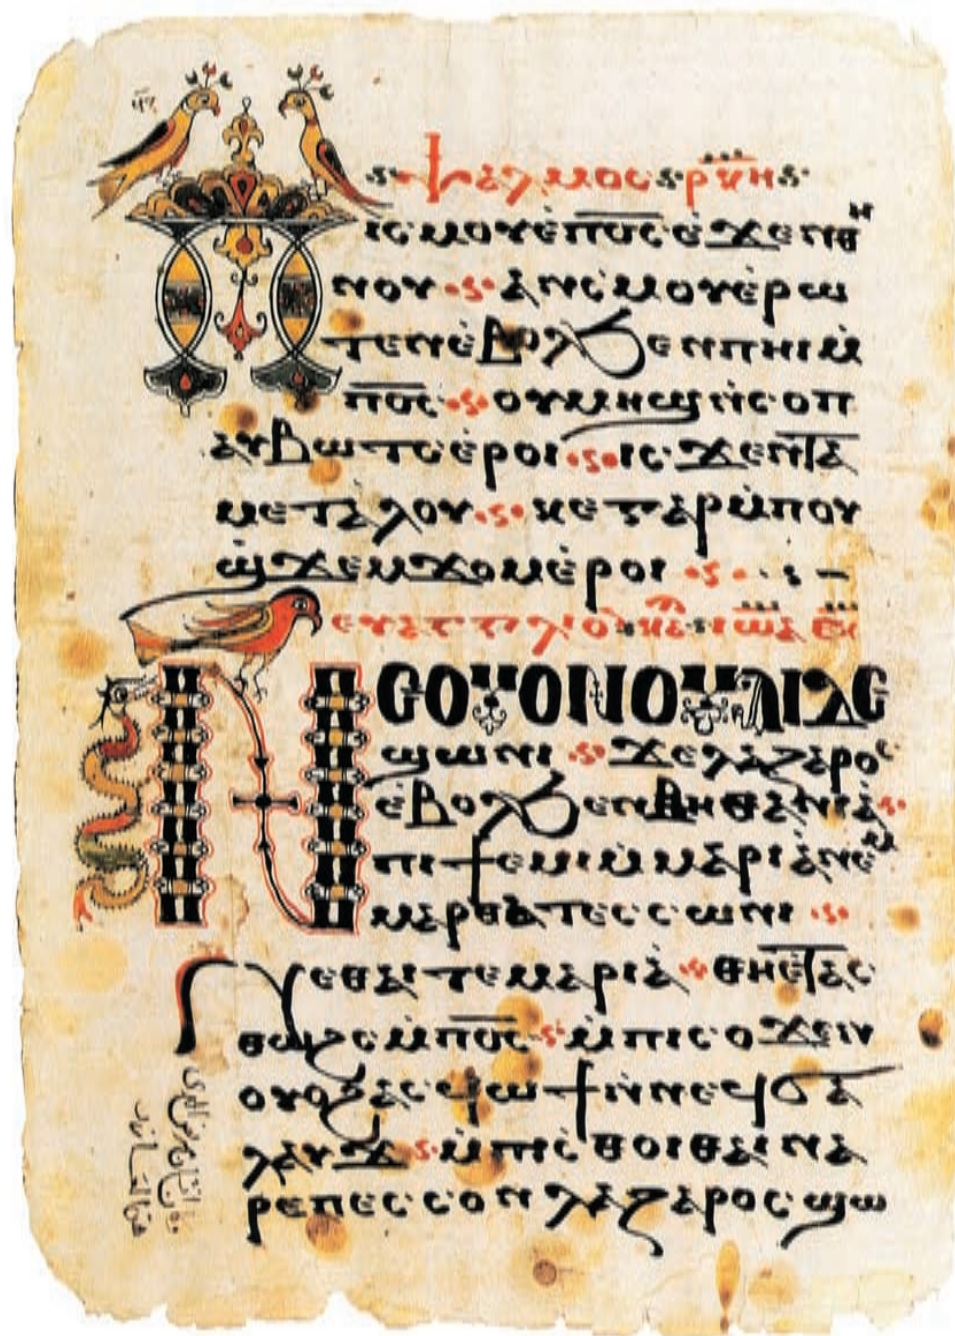 ⲯⲁⲗⲙⲟⲥ ⲣⲕⲏ
Ⲡⲓⲥⲙⲟⲩ ⲉ̀ⲡⲟ̅ⲥ̅ ⲉ̀ϫⲉⲛⲑⲏ
ⲛⲟⲩ · ⲁⲛⲥ̀ⲙⲟⲩ ⲉ̀ⲣⲱ
ⲧⲉⲛ ⲉ̀ⲃⲟⲗϧⲉⲛ ⲡⲏⲓ ⲙ̀
ⲡⲟ̅ⲥ̅ · ⲟⲩⲙⲏϣ ⲛ̀ⲥⲟⲡ
ⲁⲩⲃⲱⲧⲥ ⲉ̀ⲣⲟⲓ · ⲓⲥϫⲉⲛ ⲧⲁ
ⲙⲉⲧⲁⲗⲟⲩ · ⲕⲉ ⲅⲁⲣ ⲙ̀ⲡⲟⲩ
ϣϫⲉⲙϫⲟⲙ ⲉ̀ⲣⲟⲓ
ⲉⲩⲁⲅⲅⲗⲓⲟ ⲓⲱⲁ
Ⲛⲉ ⲟⲩⲟⲛ ⲟⲩⲁⲓ ⲇⲉ
ϣⲱⲛⲓ · ϫⲉ ⲗⲁⲍⲁⲣⲟⲥ
ⲉ̀ⲃⲟⲗϧⲉⲛ ⲃⲏⲑⲁⲛⲓⲁ̀ ·
ⲡⲓϯⲙⲓ ⲙ̀ⲙⲁⲣⲓⲁ̀ ⲛⲉⲙ
ⲙⲁⲣⲑⲁ ⲧⲉⲥⲥⲱⲛⲓ ·
Ⲛⲉ ⲑⲁⲓ ⲧⲉ ⲙⲁⲣⲓⲁ̀ · ⲑⲏ ⲉ̀ⲧⲁⲥ
ⲑⲱϩⲥ ⲙ̀ⲡⲟ̅ⲥ̅ · ⲙ̀ⲡⲓⲥⲟϫⲉⲛ
ⲟⲩⲟϩ ⲁⲥϥⲱϯ ⲛ̀ⲛⲉϥϭⲁ
ⲗⲁⲩϫ · ⲑⲁⲓ ⲛⲁ
ⲣⲉ ⲡⲉⲥⲥⲟⲛ ⲗⲁⲍⲁⲣⲟⲥ ϣⲱ